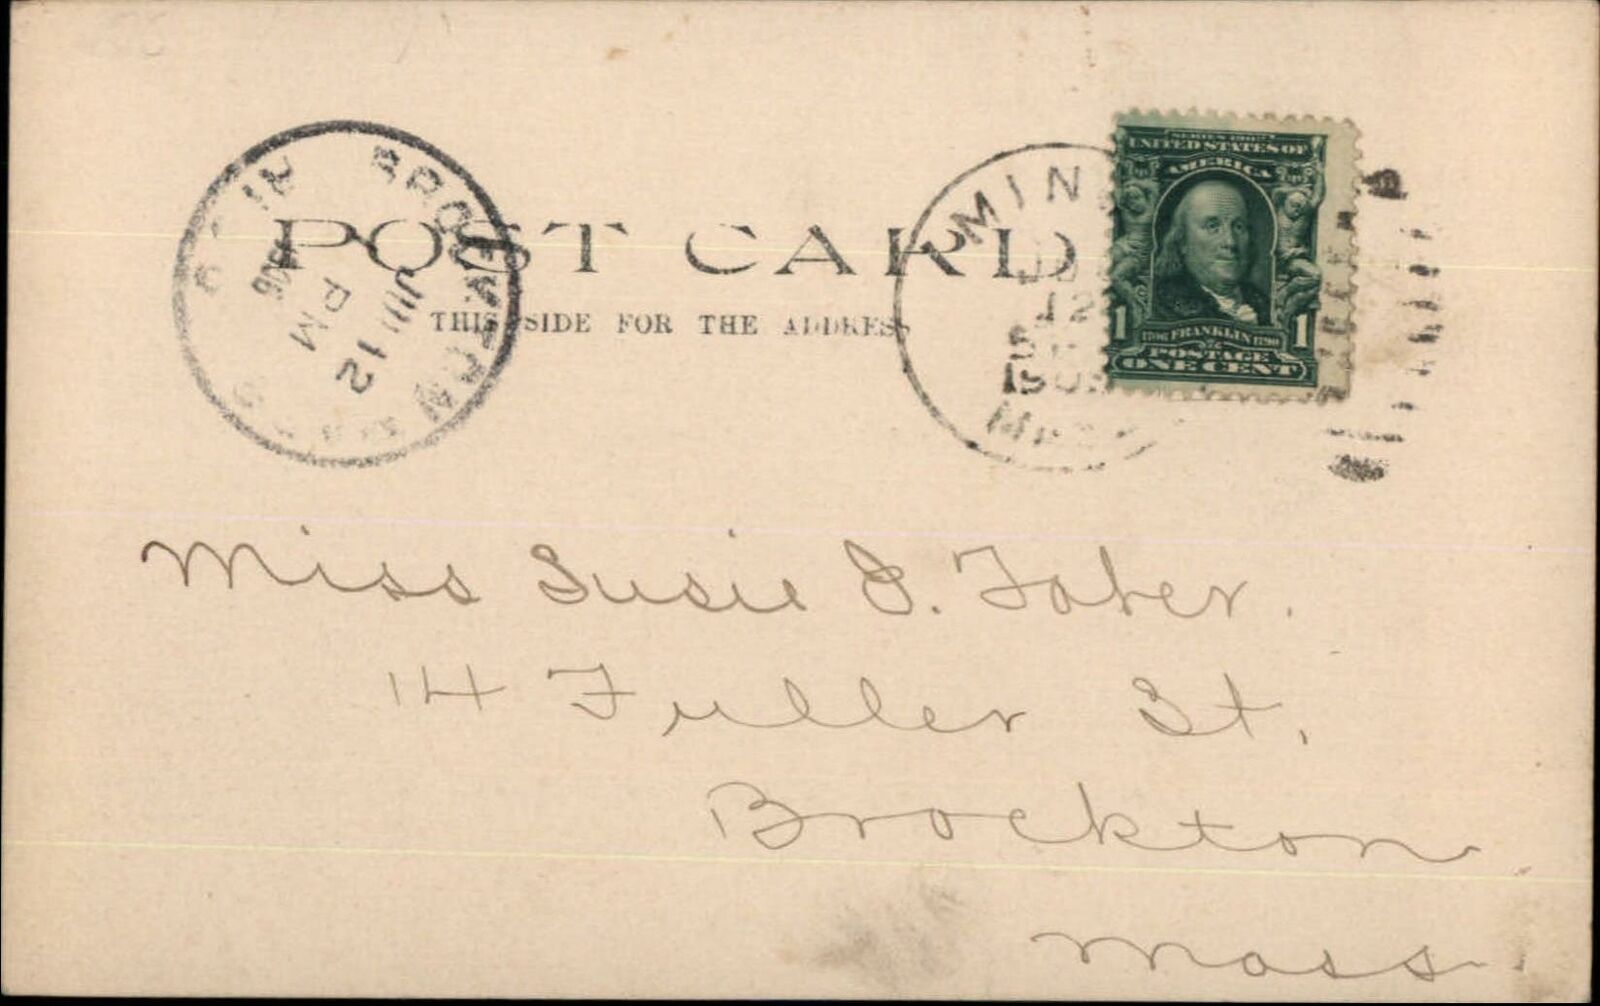 BROCKTON
JUN 12
PM
1906
MIN
12
POST CARD
THIS SIDE FOR THE ADDRESS
SERIES 1902
UNITED STATES OF
AMERICA
1 1706 FRANKLIN 1790 1
POSTAGE
ONE CENT
Miss Susie S. Tober.
14 Fuller St.
Brockton
Mass.